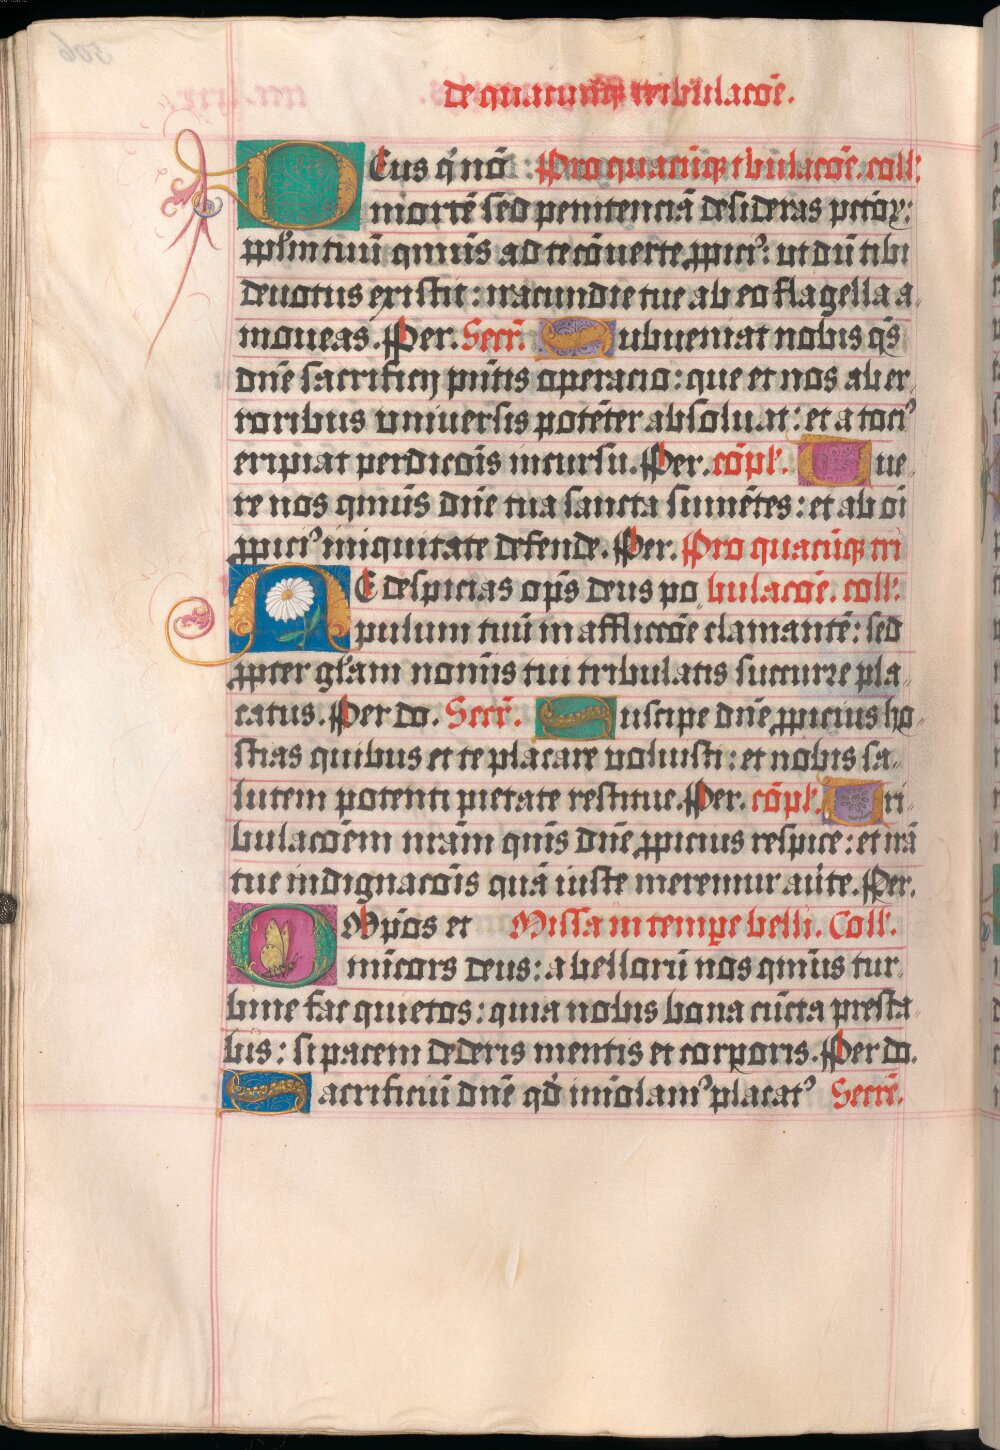 de quacūq̄ tribulacōe.
DEus q̄ nō : Pro quacūq̄ t'bulacōe. coll'.
mortē sed penitenciā desideras pctōꝝ:
pplm̄ tuū q̄mus ad te cōuerte ꝓpici⁹: ut dū tibi
deuotus existit: iracundie tue ab eo flagella a
moueas. Per. Secr̄. Subueniat nobis q̄s
dn̄e sacrificij p̄ntis operacio: que et nos ab er
roribus vniuersis potēter absoluat: et a toci⁹
eripiat perdicōis incursu. Per. cōpl'. Tue
re nos q̄mus dn̄e tua sancta sumētes: et ab oī
ꝓpici⁹ iniquitate defende. Per. Pro quacūq̄ tri
NE despicias op̄s deus po bulacōe. coll'.
pulum tuū in afflictōe clamantē: sed
ꝓpter gl'am nominis tui tribulatis succurre pla
catus. Per do. Secr̄. Suscipe dn̄e ꝓpicius ho
stias quibus et te placare voluisti: et nobis sa
lutem potenti pietate restitue. Per. cōpl'. Tri
bulacōem nr̄am q̄mus dn̄e ꝓpicius respice: et irā
tue indignacōis quā iuste meremur aūte. Per.
OMp̄os et Missa in tempe belli. Coll'.
misericors deus: a bellorū nos q̄mus tur
bine fac quietos: quia nobis bona cūcta presta
bis: si pacem dederis mentis et corporis. Per do.
Sacrificiū dn̄e qd̄ imolam⁹ placat⁹ Secrē.